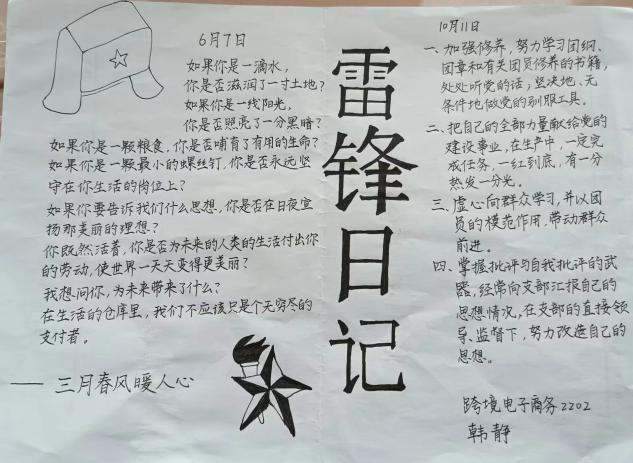 6月7日
如果你是一滴水,
你是否滋润了一寸土地?
如果你是一线阳光,
你是否照亮了一分黑暗?
如果你是一颗粮食,你是否哺育了有用的生命?
如果你是一颗最小的螺丝钉,你是否永远坚
守在你生活的岗位上?
如果你要告诉我们什么思想,你是否在日夜宣
扬那美丽的理想?
你既然活着,你是否为未来的人类的生活付出你
的劳动,使世界一天天变得更美丽?
我想问你,为未来带来了什么?
在生活的仓库里,我们不应该只是个无穷尽的
支付者。
—— 三月春风暖人心
雷锋日记
10月11日
一、加强修养,努力学习团纲、
团章和有关团员修养的书籍,
处处听党的话,坚决地、无
条件地做党的驯服工具。
二、把自己的全部力量献给党的
建设事业,在生产中,一定完
成任务,一红到底,有一分
热发一分光。
三、虚心向群众学习,并以团
员的模范作用,带动群众
前进。
四、掌握批评与自我批评的武
器,经常向支部汇报自己的
思想情况,在支部的直接领
导、监督下,努力改造自己的
思想。
跨境电子商务2202
韩静